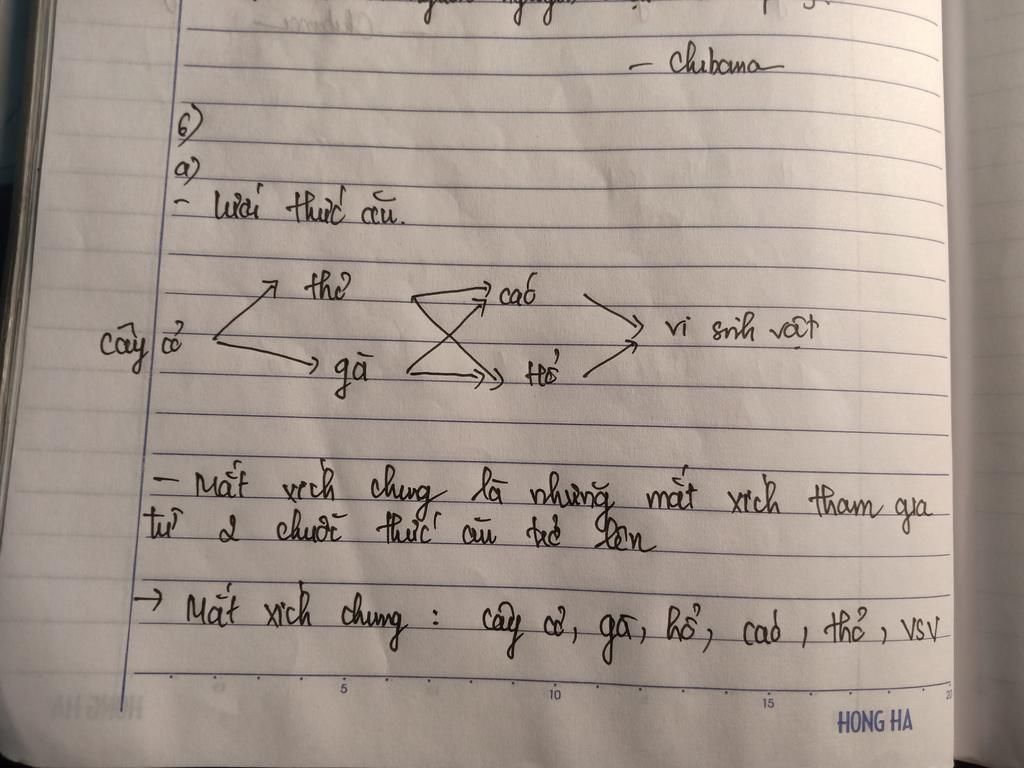 — Chibana
6)
a)
- lưới thức ăn.
thỏ cáo
cây cỏ vi sinh vật
gà hổ
- Mắt xích chung là những mắt xích tham gia
từ 2 chuỗi thức ăn trở lên
→ Mắt xích chung : cây cỏ, gà, hổ, cáo, thỏ, VSV
5 10 15 20
HONG HA